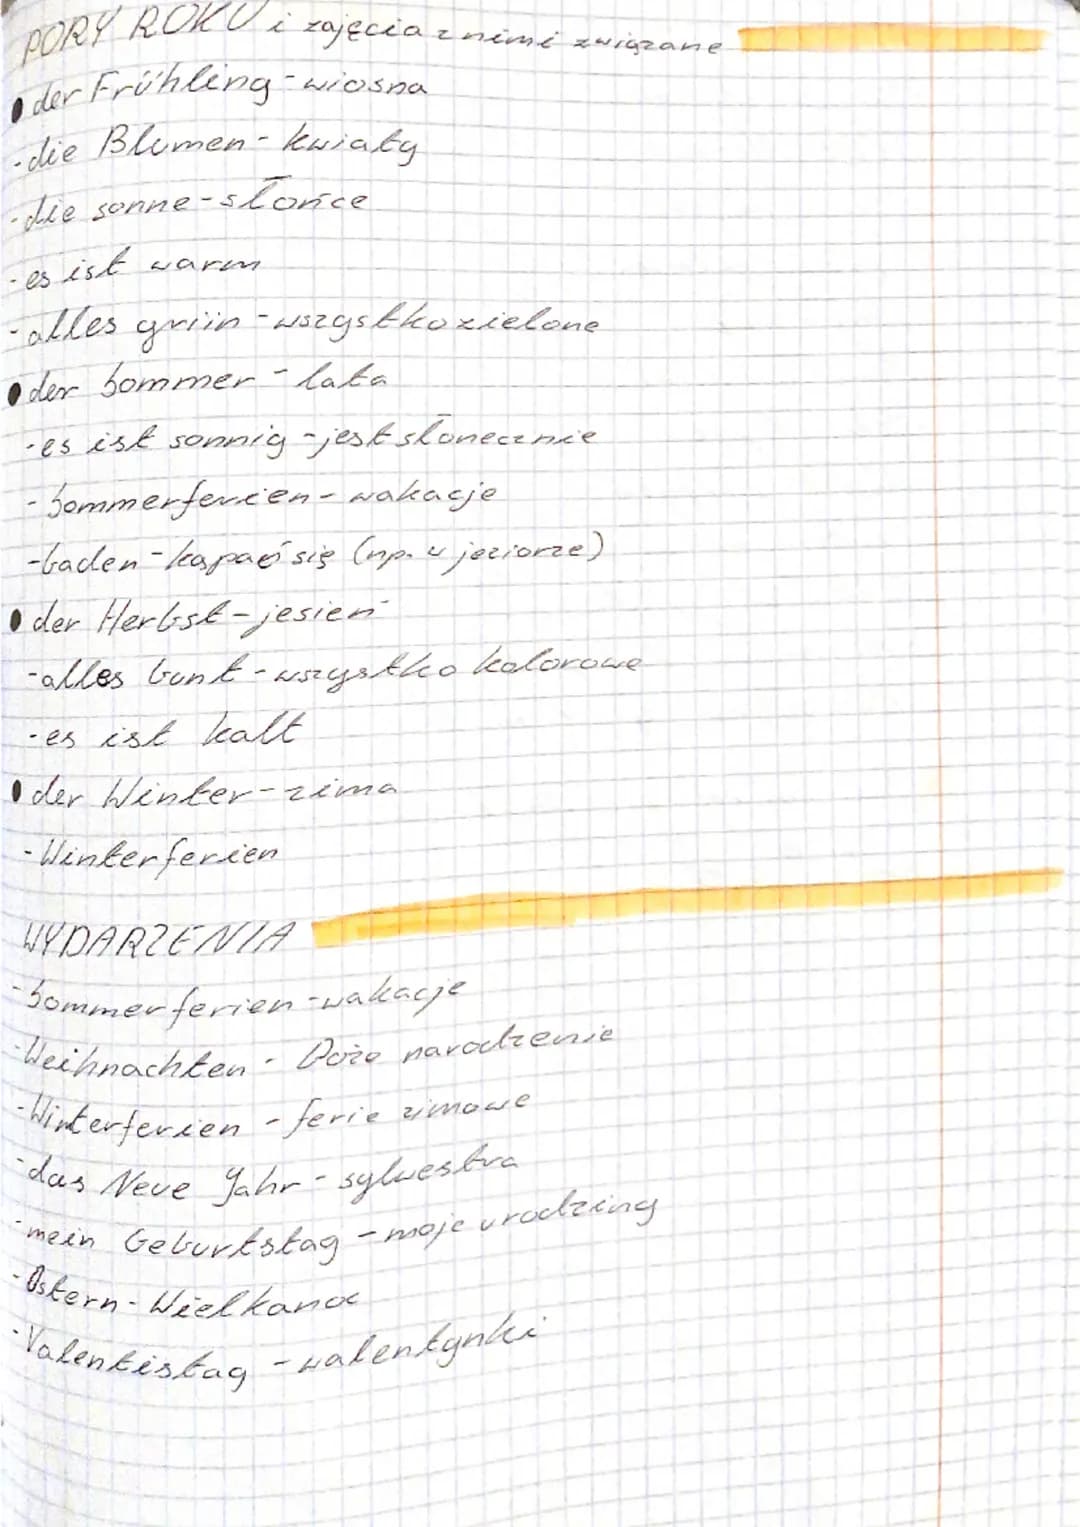 PORY ROKU i zajęcia z nimi związane
der Frühling - wiosna
- die Blumen - kwiaty
- die sonne - słońce
- es ist warm
- alles grün - wszystko zielone
der Sommer - lata
- es ist sonnig - jest słonecznie
- Sommerferien - wakacje
- baden - kąpać się (np. w jeziorze)
der Herbst - jesień
- alles bunt - wszystko kolorowe
- es ist kalt
der Winter - zima
- Winterferien
WYDARZENIA
- Sommerferien - wakacje
- Weihnachten - Boże narodzenie
- Winterferien - ferie zimowe
- das Neue Jahr - sylwestra
- mein Geburtstag - moje urodziny
- Ostern - Wielkanoc
- Valentistag - walentynki